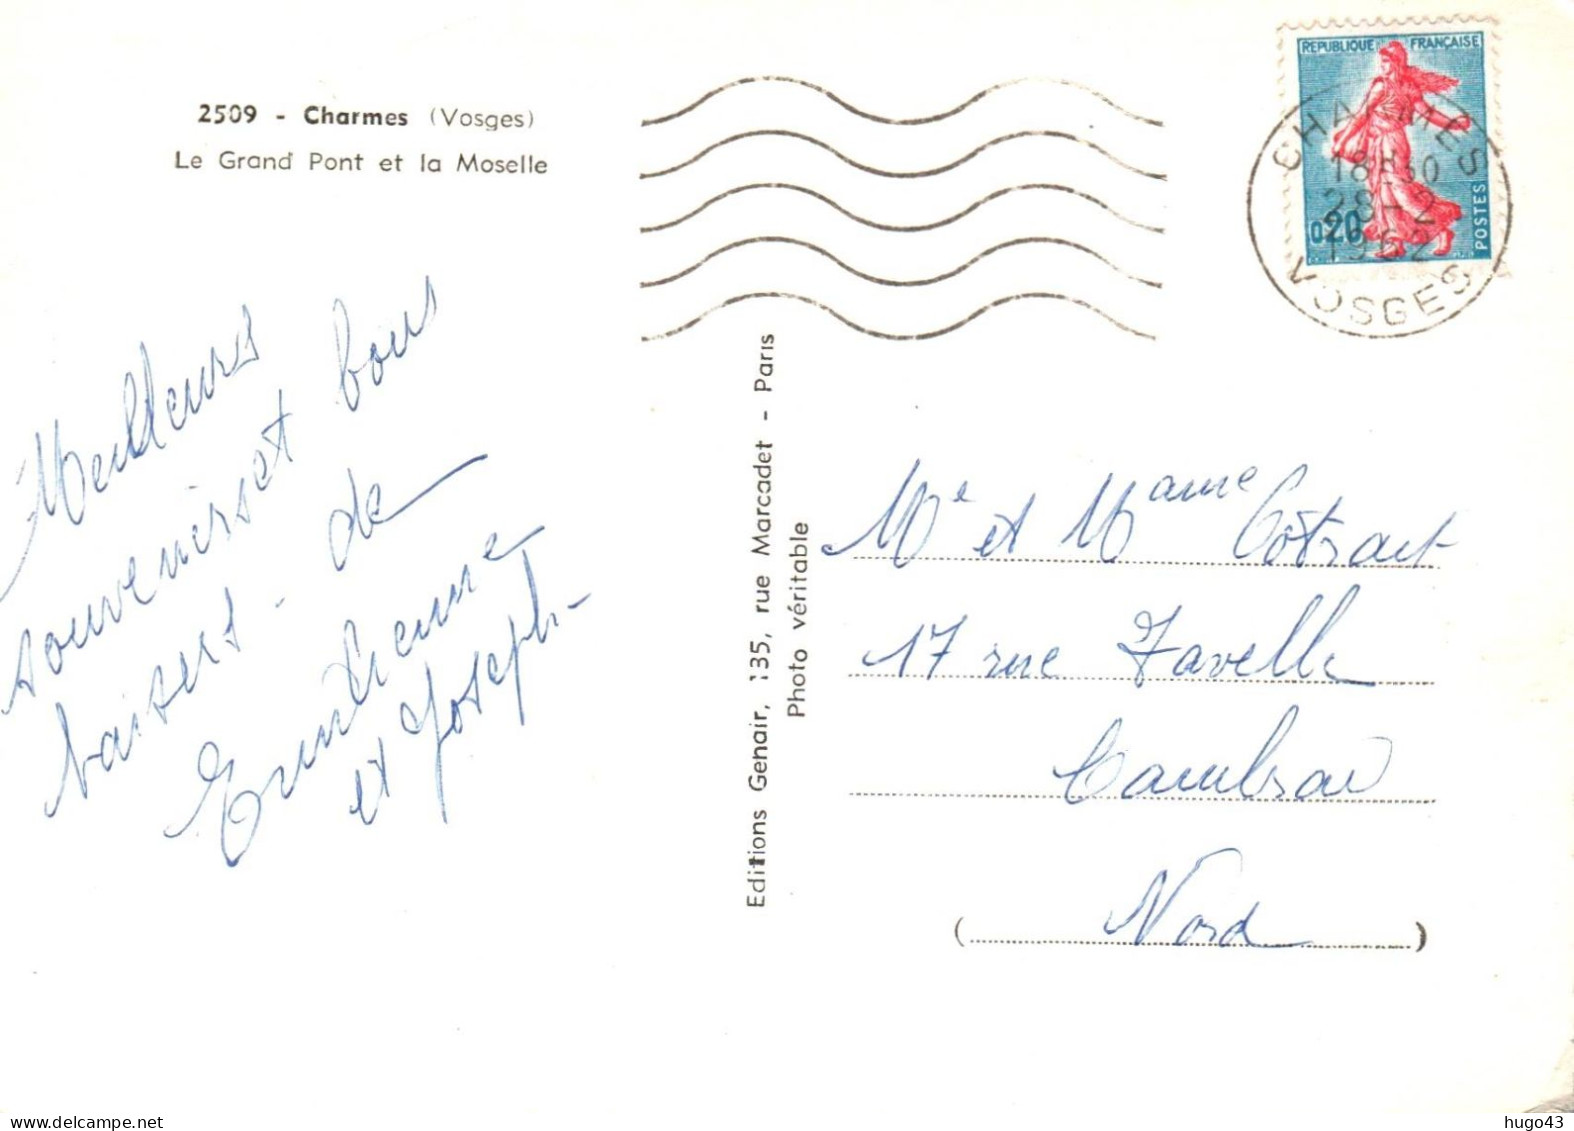 2509 - Charmes (Vosges)
Le Grand Pont et la Moselle
REPUBLIQUE FRANÇAISE
0,20
POSTES
CHARMES
18H30
28-2
1962
VOSGES
Meilleurs
souvenirs et bons
baisers - de
et Joseph -
Editions Genair, 135, rue Marcadet - Paris
Photo véritable
Mr et Mame
17 rue
Cambrai
(Nord)
hugo43